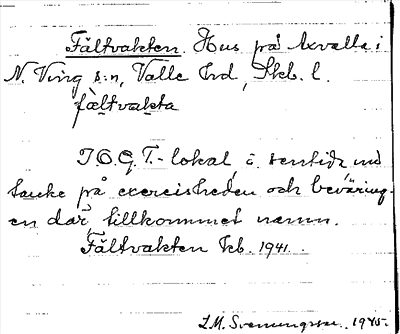 Fältvakten. Hus på Axvalla i
N. Ving s:n, Valle hrd, Skb. l.
fàltvakta
I.O.G.T.-lokal i sentida med
tanke på exercisheden och beväring-
en där tillkommet namn.
Fältvakten kb. 1941.
L.M. Svenungsson. 1945.